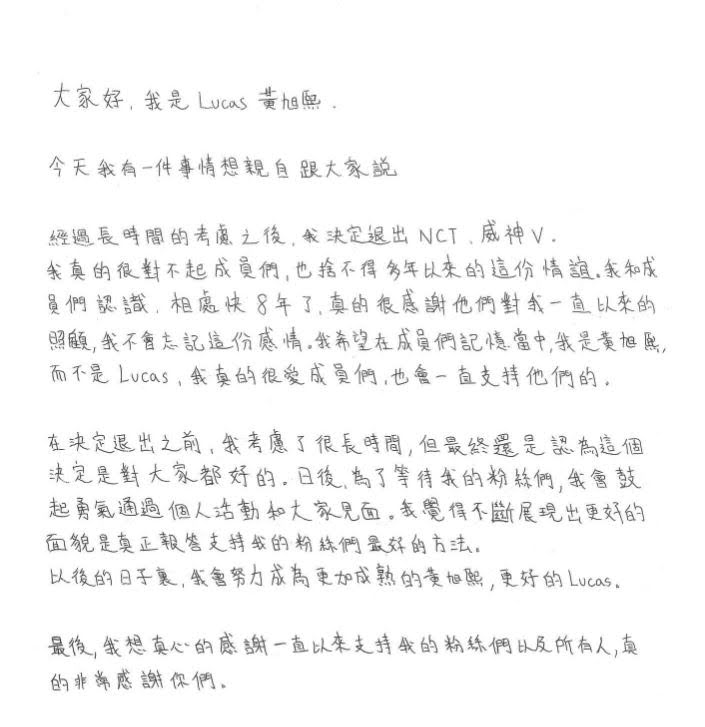 大家好, 我是 Lucas 黃旭熙.
今天我有一件事情想親自跟大家說
經過長時間的考慮之後, 我決定退出 NCT、威神V.
我真的很對不起成員們,也捨不得多年以來的這份情誼。我和成
員們認識、相處快8年了,真的很感謝他們對我一直以來的
照顧,我不會忘記這份感情。我希望在成員們記憶當中,我是黃旭熙,
而不是 Lucas, 我真的很愛成員們,也會一直支持他們的.
在決定退出之前,我考慮了很長時間,但最終還是認為這個
決定是對大家都好的。日後,為了等待我的粉絲們,我會鼓
起勇氣通過個人活動和大家見面。我覺得不斷展現出更好的
面貌是真正報答支持我的粉絲們最好的方法。
以後的日子裏,我會努力成為更加成熟的黃旭熙,更好的Lucas。
最後,我想真心的感謝一直以來支持我的粉絲們以及所有人,真
的非常感謝你們。